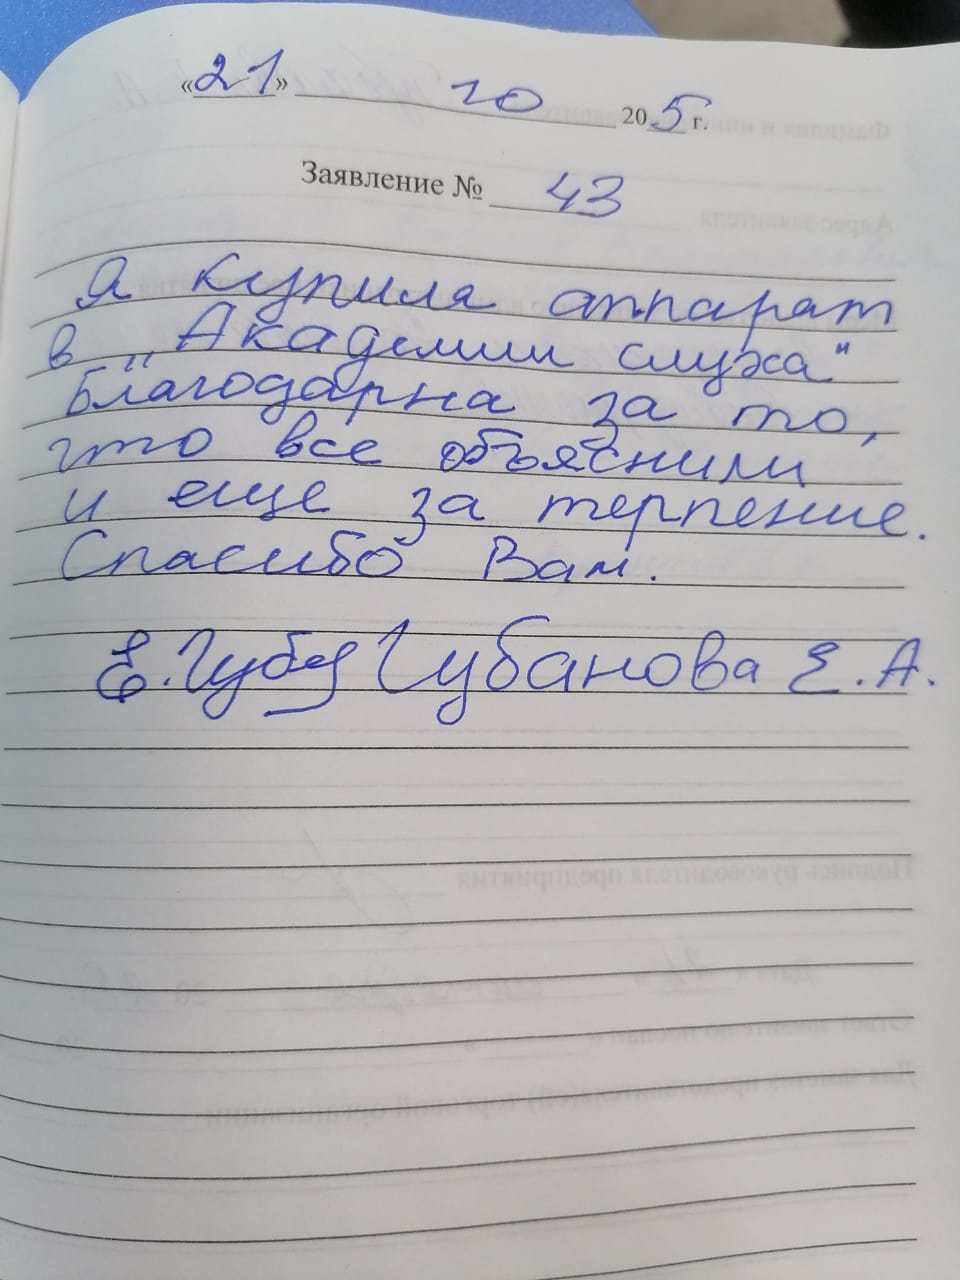 «21» 10 205 г.
Заявление № 43
Я купила аппарат
в "Академии слуха"
Благодарна за то,
что все объяснили
и еще за терпение.
Спасибо Вам.
Губанова Е.А.